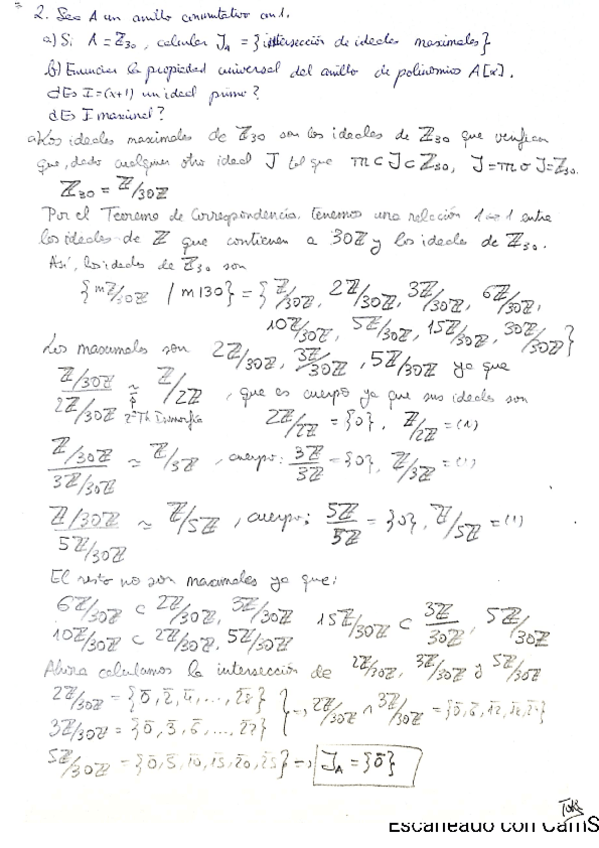 2. Sea A un anillo conmutativo con 1.
a) Si A = ℤ₃₀, calcular J_A = {intersección de ideales maximales}.
b) Enunciar la propiedad universal del anillo de polinomios A[x].
¿Es I = (x+1) un ideal primo?
¿Es I maximal?
a) Los ideales maximales de ℤ₃₀ son los ideales de ℤ₃₀ que verifican
que, dado cualquier otro ideal J tal que m ⊂ J ⊂ ℤ₃₀, J = m o J = ℤ₃₀.
ℤ₃₀ = ℤ/30ℤ
Por el Teorema de Correspondencia tenemos una relación 1 a 1 entre
los ideales de ℤ que contienen a 30ℤ y los ideales de ℤ₃₀.
Así, los ideales de ℤ₃₀ son
{mℤ/30ℤ / m|30} = {ℤ/30ℤ, 2ℤ/30ℤ, 3ℤ/30ℤ, 6ℤ/30ℤ,
10ℤ/30ℤ, 5ℤ/30ℤ, 15ℤ/30ℤ, 30ℤ/30ℤ}
Los maximales son 2ℤ/30ℤ, 3ℤ/30ℤ, 5ℤ/30ℤ ya que
(ℤ/30ℤ)/(2ℤ/30ℤ) ≃ ℤ/2ℤ, que es cuerpo ya que sus ideales son
2º Th Isomorfía 2ℤ/2ℤ = {0}, ℤ/2ℤ = (1)
(ℤ/30ℤ)/(3ℤ/30ℤ) ≃ ℤ/3ℤ, cuerpo: 3ℤ/3ℤ = {0}, ℤ/3ℤ = (1)
(ℤ/30ℤ)/(5ℤ/30ℤ) ≃ ℤ/5ℤ, cuerpo: 5ℤ/5ℤ = {0}, ℤ/5ℤ = (1)
El resto no son maximales ya que:
6ℤ/30ℤ ⊂ 2ℤ/30ℤ, 3ℤ/30ℤ 15ℤ/30ℤ ⊂ 3ℤ/30ℤ, 5ℤ/30ℤ
10ℤ/30ℤ ⊂ 2ℤ/30ℤ, 5ℤ/30ℤ
Ahora calculamos la intersección de 2ℤ/30ℤ, 3ℤ/30ℤ y 5ℤ/30ℤ
2ℤ/30ℤ = {0̄, 2̄, 4̄, ..., 2̄8̄} → 2ℤ/30ℤ ∩ 3ℤ/30ℤ = {0̄, 6̄, 1̄2̄, 1̄8̄, 2̄4̄}
3ℤ/30ℤ = {0̄, 3̄, 6̄, ..., 2̄7̄}
5ℤ/30ℤ = {0̄, 5̄, 1̄0̄, 1̄5̄, 2̄0̄, 2̄5̄} → J_A = {0̄}
Escaneado con CamS